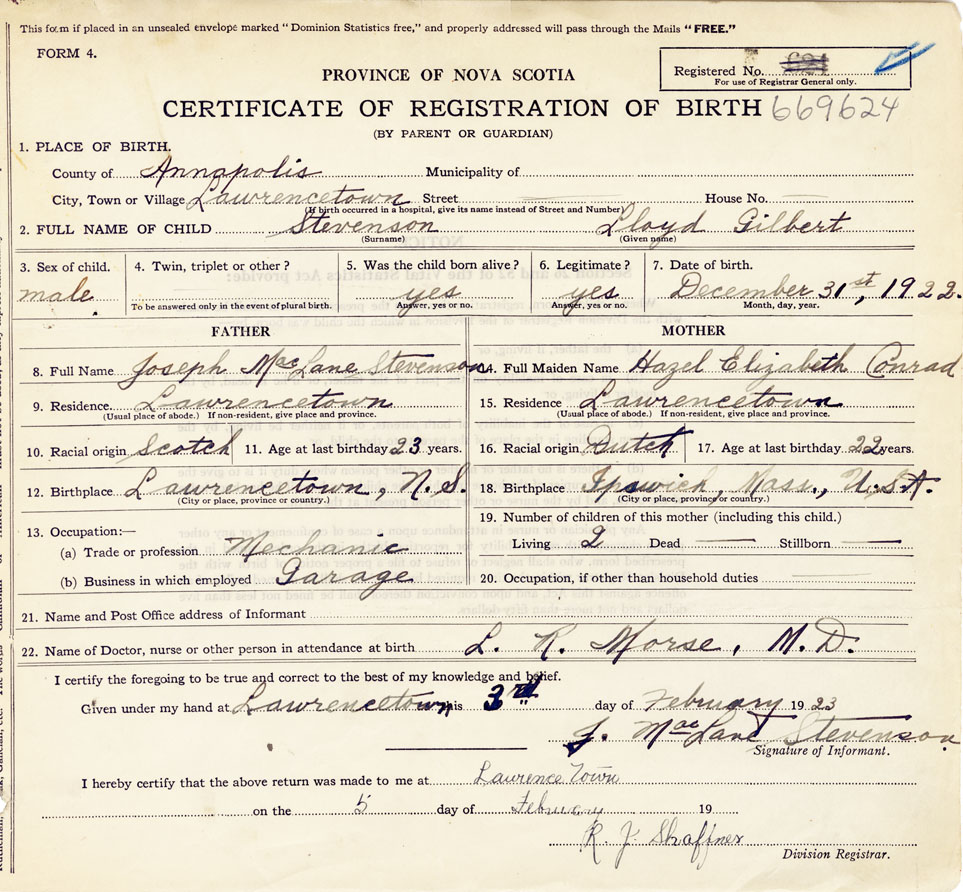 This form if placed in an unsealed envelope marked "Dominion Statistics free," and properly addressed will pass through the Mails "FREE."
FORM 4.
Registered No.
For use of Registrar General only.
PROVINCE OF NOVA SCOTIA
CERTIFICATE OF REGISTRATION OF BIRTH 669624
(BY PARENT OR GUARDIAN)
1. PLACE OF BIRTH.
County of Annapolis Municipality of
City, Town or Village Lawrencetown Street House No.
(If birth occurred in a hospital, give its name instead of Street and Number)
2. FULL NAME OF CHILD Stevenson Lloyd Gilbert
(Surname) (Given name)
3. Sex of child. 4. Twin, triplet or other? 5. Was the child born alive? 6. Legitimate? 7. Date of birth.
male yes yes December 31st, 1922.
To be answered only in the event of plural birth. Answer, yes or no. Answer, yes or no. Month, day, year.
FATHER MOTHER
8. Full Name Joseph MacLane Stevenson 14. Full Maiden Name Hazel Elizabeth Conrad
9. Residence Lawrencetown 15. Residence Lawrencetown
(Usual place of abode.) If non-resident, give place and province. (Usual place of abode.) If non-resident, give place and province.
10. Racial origin Scotch 11. Age at last birthday 23 years. 16. Racial origin Dutch 17. Age at last birthday 22 years.
12. Birthplace Lawrencetown, N.S. 18. Birthplace Ipswich, Mass., U.S.A.
(City or place, province or country.) (City or place, province or country.)
13. Occupation:— 19. Number of children of this mother (including this child.)
(a) Trade or profession Mechanic Living 2 Dead Stillborn
(b) Business in which employed Garage 20. Occupation, if other than household duties
21. Name and Post Office address of Informant
22. Name of Doctor, nurse or other person in attendance at birth L. R. Morse, M.D.
I certify the foregoing to be true and correct to the best of my knowledge and belief.
Given under my hand at Lawrencetown this 3rd day of February 1923
J. MacLane Stevenson
Signature of Informant.
I hereby certify that the above return was made to me at Lawrence Town
on the 5 day of February 19
R. J. Shaffner
Division Registrar.